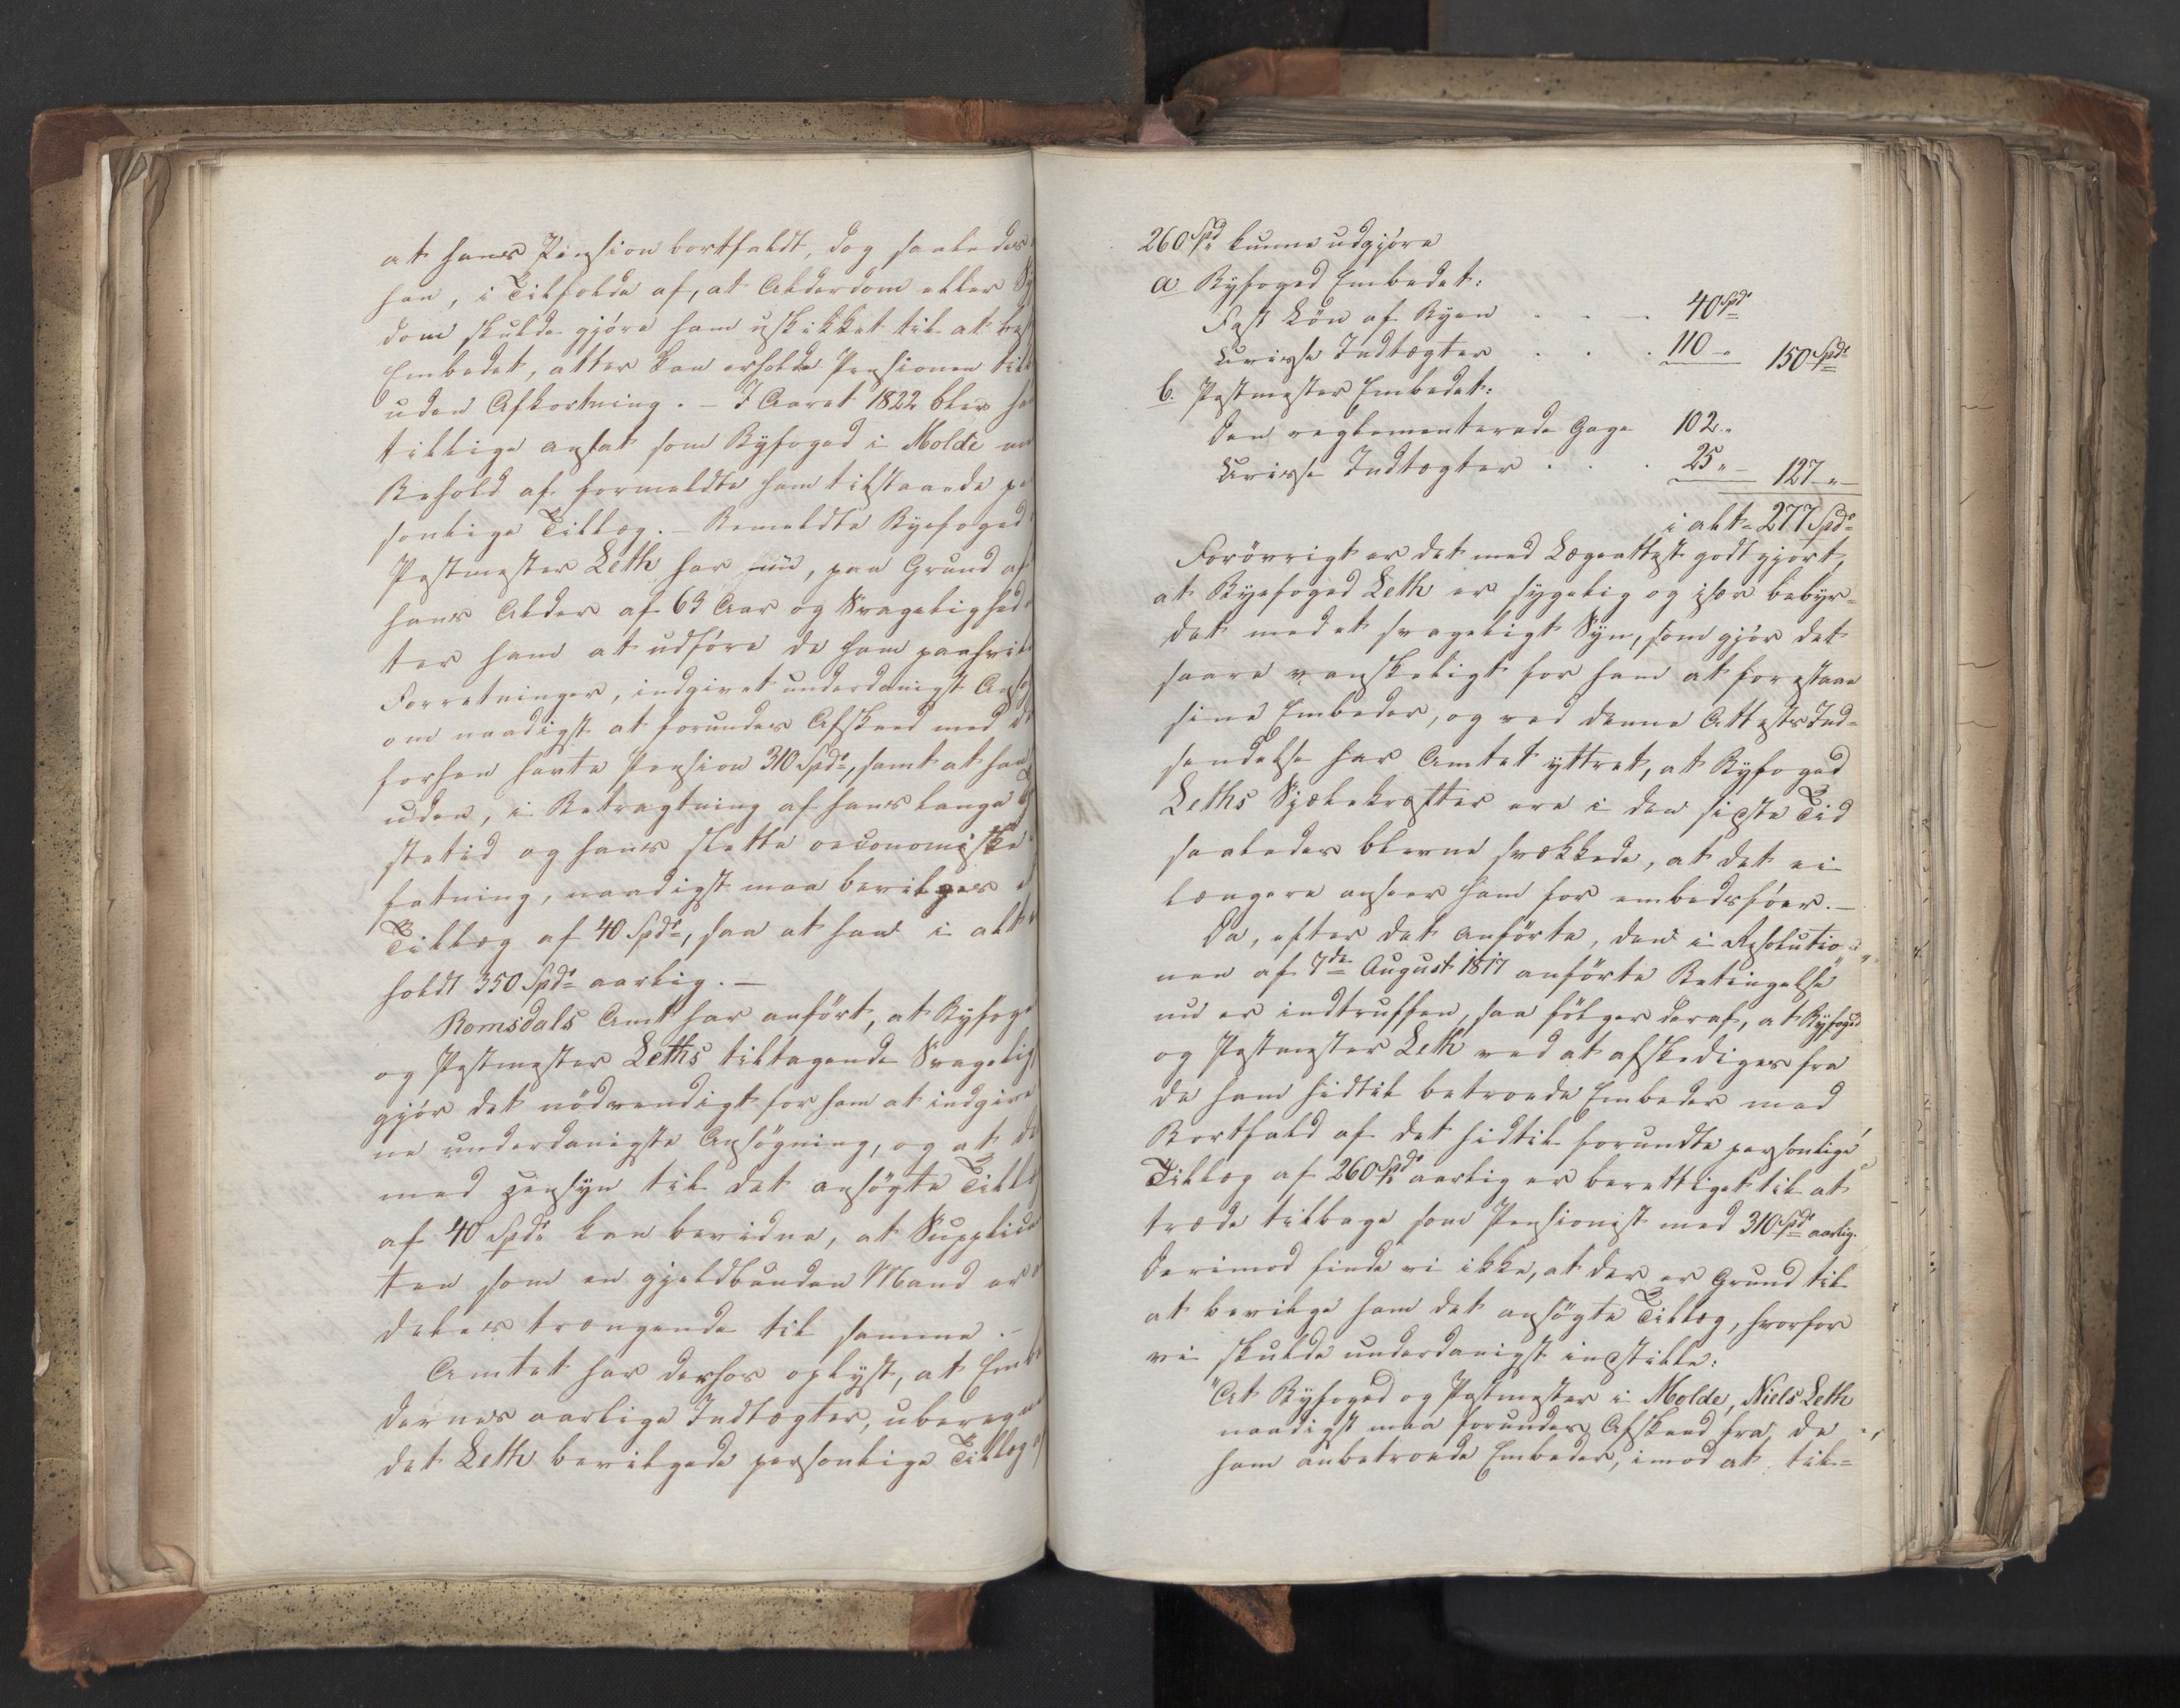 at hans Pension bortfaldt, dog saaledes
han, i Tilfælde af, at Alderdom eller Sy
dom skulde gjøre ham uskikket til at best
Embedet, atter kan erholde Pensionen till
uden Afkortning. – I Aaret 1822 blev ha
tillige ansat som Byfoged i Molde m
Behold af formeldte ham tilstaaede pe
sonlige Tillæg. – Bemeldte Byefoged
Postmester Leth har nu, paa Grund af
hans Alder af 63 Aar og Svagelighed
ter ham at udføre de ham paahvil
Forretninger, indgivet underdanigst Ansø
om naadigst at forundes Afskeed med d
forhen havte Pension 310 Spd, samt at han
uden, i Betragtning af hans lange
stetid og hans slette oeconomiske
fatning, naadigst maa bevilges et
Tillæg af 40 Spd, saa at han i alt
holdt 350 Spd aarlig. –
Romsdals Amt har anført, at Byfoge
og Postmester Leths tiltagende Svagelig
gjør det nødvendigt for ham at indgive
ne underdanigste Ansøgning, og at de
med Hensyn til det ansøgte Tillæ
af 40 Spd kan bevidne, at Supplica
ten som en gjældbunden Mand er
deles trængende til samme. –
Amtet har derhos oplyst, at Embe
dernes aarlige Indtægter, uberegn
det Leth bevilgede personlige Tillæg af
260 Spd kunne udgjøre
a Byfoged Embedet:
Fast Løn af Byen . . . 40 Spd
Uvisse Indtægter . . . 110 – " 150 Spd
b. Postmester Embedet:
Den reglementerede Gage 102 "
Uvisse Indtægter . . . 25 " – 127 – " –
i alt = 277 Spd
Forøvrigt er det med Lægeattest godtgjort,
at Byefoged Leth er sygelig og især bebyr=
det med et svageligt Syn, som gjør det
saare vanskeligt for ham at forestaae
sine Embeder, og ved denne Attests Ind=
sendelse har Amtet yttret, at Byfoged
Leths Sjælekræfter ere i den sidste Tid
saaledes blevne svækkede, at det ei
længere anseer ham for embedsfør. –
Da, efter det anførte, den i Resolutio=
nen af 7de August 1817 anførte Betingelse
nu er indtruffen, saa følger deraf, at Byfoged
og Postmester Leth ved at afskediges fra
de ham hidtil betroede Embeder med
Bortfald af det hidtil forundte personlige
Tillæg af 260 Spd aarlig er berettiget til at
træde tilbage som Pensionist med 310 Spd aarlig.
Derimod finde vi ikke, at der er Grund til
at bevilge ham det ansøgte Tillæg, hvorfor
vi skulde underdanigst indstille:
"At Byfoged og Postmester i Molde, Niels Leth
naadigst maa forundes Afskeed fra de
ham anbetroede Embeder, imod at til=